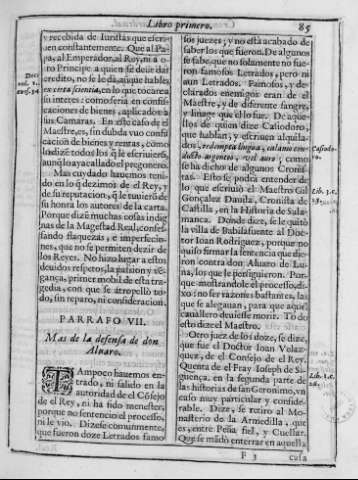 Libro primero. 85
y recebida de Iuristas que escri-
uen constantemente. Que al Pa-
pa, al Emperador, al Rey, ni a o-
tro Principe a quien se deue dar
credito, no se le dá, asque hables
ex certa scientia, en lo que tocare a
su interes: como seria en confis-
caciones de bienes, aplicados à
sus Camaras. En este caso de el
Maestre, es, sin dubda vuo confis-
cacion de bienes y rentas, como
lo dizē todos los q̃ le escriuierō,
aunq̃ lo aya callado el pregonero.
Mas cuydado hauemos teni-
do en lo q̃ dezimos de el Rey, y
de su reputacion, q̃ le tuuierō de
su honra los autores de la carta.
Porque dizē muchas cosas indig-
nas de la Magestad Real, confes-
sando flaquezas, e imperfecio-
nes, que no se permiten dezir de
los Reyes. No hizo lugar a estos
deuidos respetos, la passion y vē-
gança, primer mobil de esta tra-
gedia, con que se atropelló to-
do, sin reparo, ni consideracion.
PARRAFO VII.
Mas de la defensa de don
Aluaro.
Tampoco hauemos en-
trado, ni salido en la
autoridad de el Cōsejo
de el Rey, ni ha sido menester,
porque no sentencio el processo,
ni le vio. Dizese comunmente,
que fueron doze Letrados famo
sos juezes; y no està acabado de
saber los que fueron. De algunos
se sabe, que no solamente no fue-
ron famosos Letrados, pero ni
aun Letrados. Famosos, y de-
clarados enemigos eran de el
Maestre, y de diferente sangre,
y linage que el lo fue. De aque-
llos de quien dize Casiodoro,
que hablan, y escriuen alquila-
dos, redempta lingua, calamo con-
ducto argento, vel auro; como
se ha dicho de algunos Cronis-
tas. Esto se podra entender de
lo que escriuió el Maestro Gil
Gonçalez Dauila, Cronista de
Castilla, en la Historia de Sala-
manca. Donde dize, se le quitò
la villa de Babilafuente al Do-
ctor Ioan Rodriguez, porque no
quiso firmar la sentencia que die-
ron contra don Aluaro de Lu-
na, los que le persiguieron. Por-
que mostrandole el processo, di-
xo: no ser razones bastantes, las
que se aleganan, para que aquel
cauallero deuiesse morir. Todo
esto dize el Maestro.
Otro juez de los doze, se dize,
que fue el Doctor Ioan Velaz-
quez, de el Consejo de el Rey.
Quenta de el Fray Ioseph de Si-
guença, en la segunda parte de
las historias de san Geronimo, vn
caso muy particular y conside-
rable. Dize, se retiro al Mo-
nasterio de la Armedilla, que
es, entre Peña fiel, y Cuellar.
Que se mādò enterrar en aquella
F 3 casa
Casiodo-
ro.